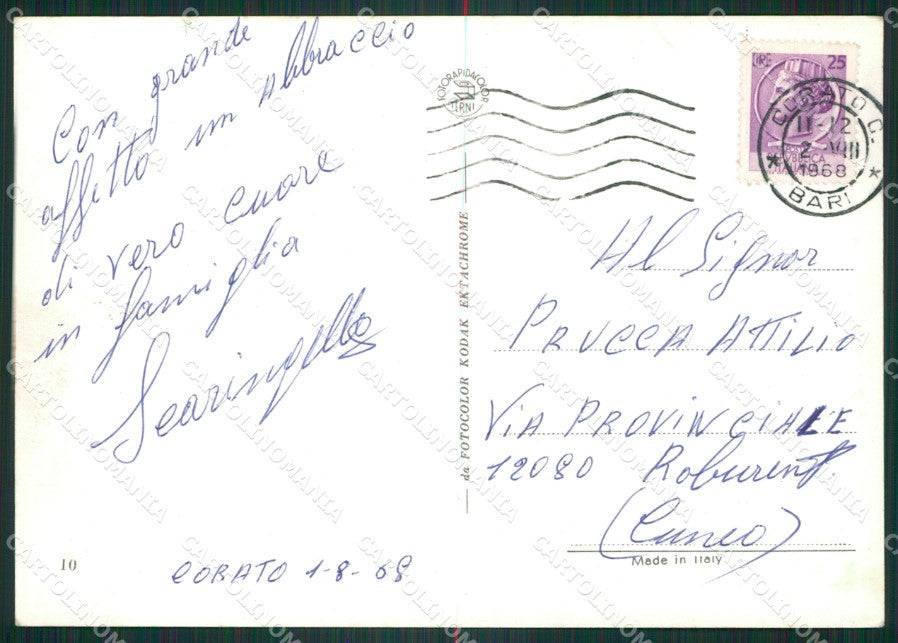 Con grande
affetto un abbraccio
di vero cuore
in famiglia
Scaringella
CORATO 1-8-68
10
FOTORAPIDACOLOR
TERNI
da FOTOCOLOR KODAK EKTACHROME
LIRE 25
CORATO C.
11-12
2 VIII
1968
BARI
Al Signor
PRUCCA ATTILIO
VIA PROVINCIALE
12080 Roburent
(Cuneo)
Made in Italy
CARTOLINOMANIA